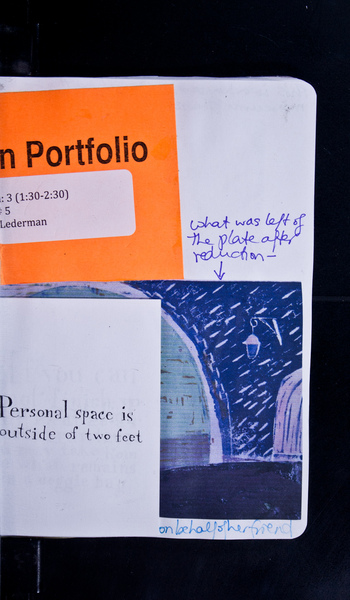 n Portfolio
: 3 (1:30-2:30)
5
Lederman
what was left of
the plate after
reduction -
Personal space is
outside of two feet
on behalf of her friend